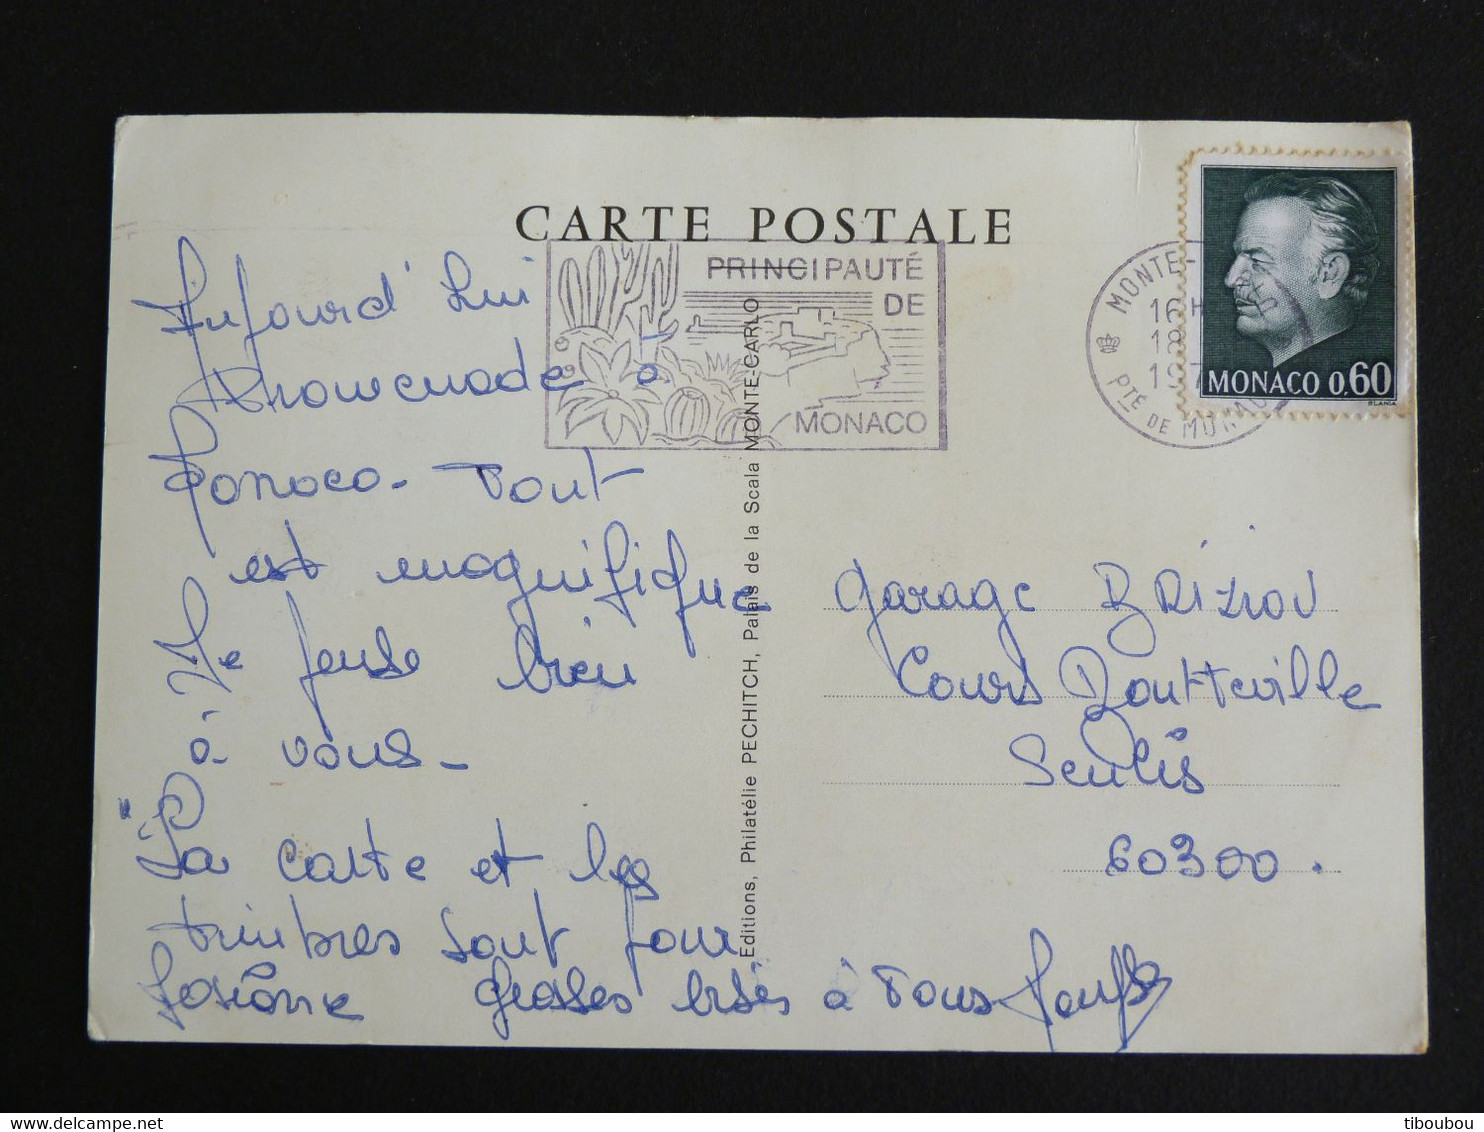 CARTE POSTALE
PRINCIPAUTÉ
DE
MONACO
MONTE-
16H
197
PTÉ DE
MONACO 0,60
Aujourd'hui
Promenade à
Monaco - Tout
est magnifique
Je pense bien
à vous -
La carte et les
timbres sont pour
Josiane Grosses bises à Tous
Editions, Philatélie PECHITCH, Palais de la Scala MONTE-CARLO
Garage BRIZION
Cours Boutteville
Senlis
60300.
tiboubou